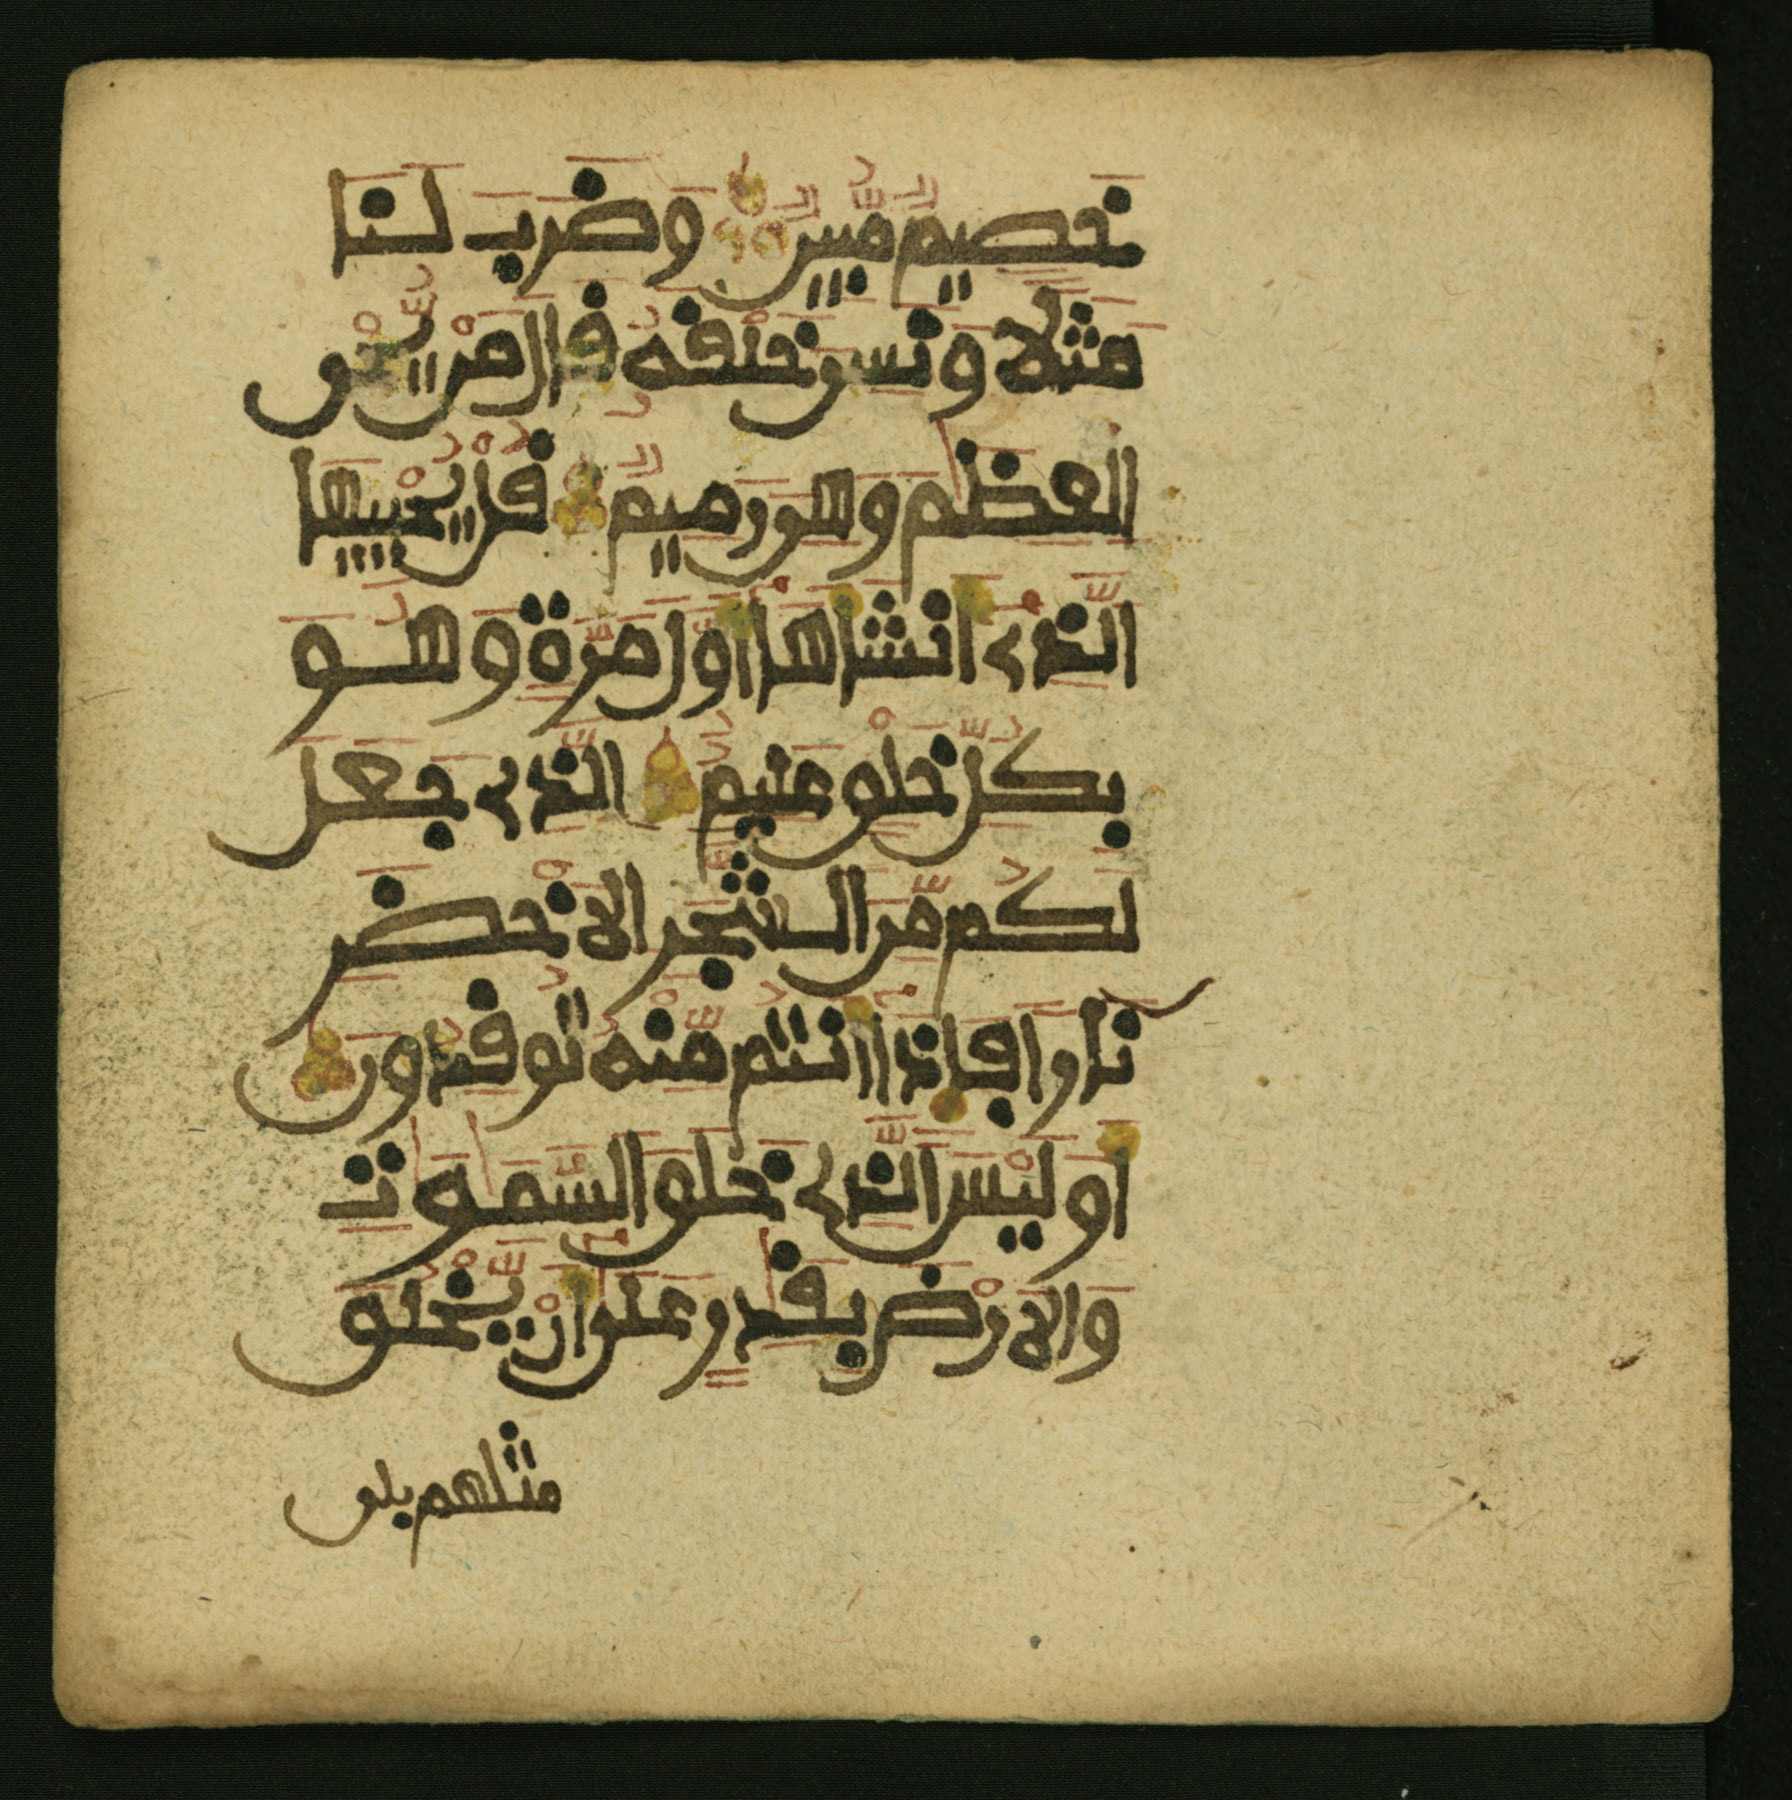 خَصِيمٌ مُّبِينٌ وَضَرَبَ لَنَا
مَثَلًا وَنَسِىَ خَلْقَهُ قَالَ مَنْ يُّحْىِ
الْعِظَٰمَ وَهِىَ رَمِيمٌ قُلْ يُحْيِيهَا
الَّذِے أَنشَأَهَا أَوَّلَ مَرَّةٍ وَهُوَ
بِكُلِّ خَلْقٍ عَلِيمٌ الَّذِے جَعَلَ
لَكُم مِّنَ الشَّجَرِ الَاخْضَرِ
نَارًا فَإِذَا أَنتُم مِّنْهُ تُوقِدُونَ
أَوَلَيْسَ الَّذِے خَلَقَ السَّمَٰوَٰتِ
وَالَارْضَ بِقَٰدِرٍ عَلَىٰ أَنْ يَّخْلُقَ
مثلهم بلى